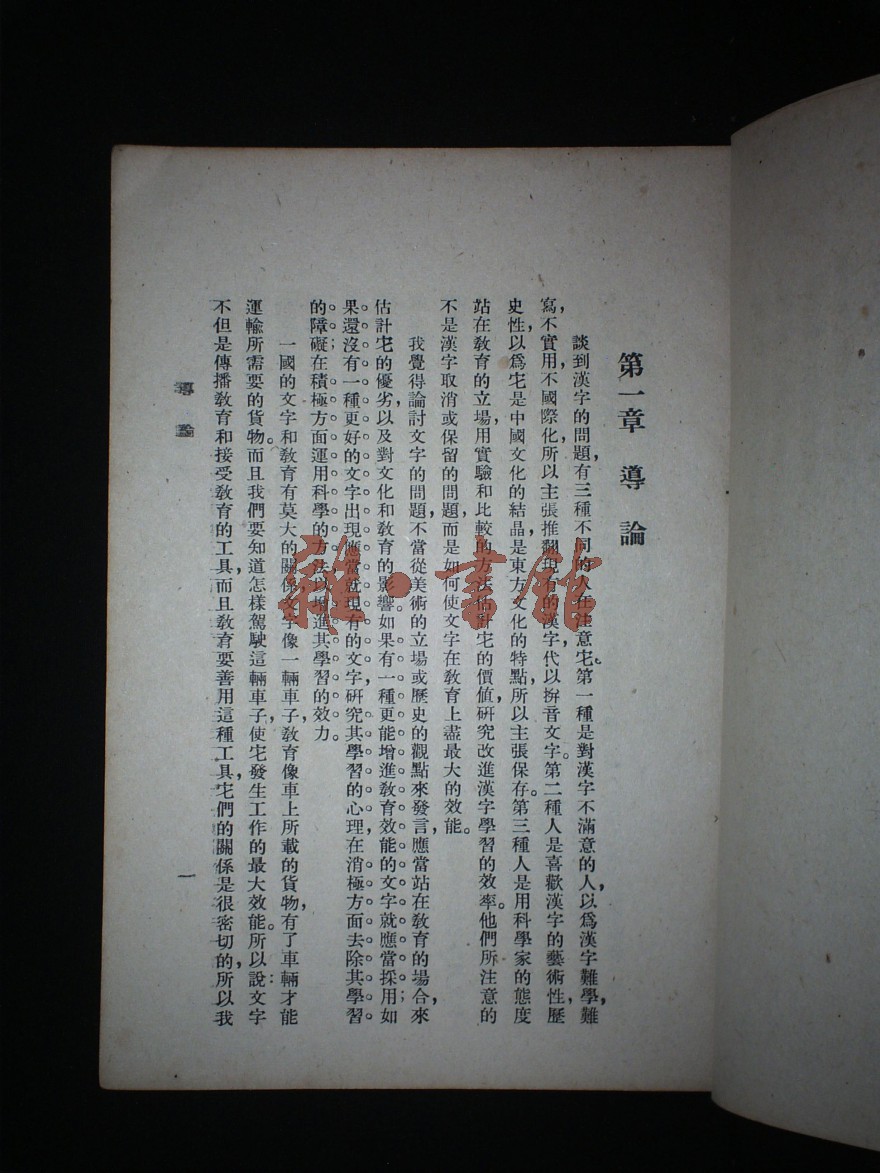 第一章　導論
談到漢字的問題，有三種不同的人在注意宅。第一種是對漢字不滿意的人，以爲漢字難學，難
寫，不實用，不國際化，所以主張推翻現有的漢字，代以拚音文字。第二種人是喜歡漢字的藝術性，歷
史性，以爲宅是中國文化的結晶，是東方文化的特點，所以主張保存。第三種人是用科學家的態度
站在敎育的立場，用實驗和比較的方法估計宅的價値，硏究改進漢字學習的效率。他們所注意的
不是漢字取消或保留的問題，而是如何使文字在敎育上盡最大的效能。
我覺得論討文字的問題，不當從美術的立場或歷史的觀點來發言，應當站在敎育的場合，來
估計宅的優劣，以及對文化和敎育的影響。如果有一種更能增進敎育效能的文字就應當採用；如
果還沒有一種更好的文字出現應當就現有的文字，硏究其學習的心理，在消極方面去除其學習
的障礙；在積極方面運用科學的方法以增進其學習的效力。
一國的文字和敎育有莫大的關係，文字像一輛車子，敎育像車上所載的貨物，有了車輛才能
運輸所需要的貨物。而且我們要知道怎樣駕駛這輛車子，使宅發生工作的最大效能。所以說：文字
不但是傳播敎育和接受敎育的工具，而且敎育要善用這種工具，宅們的關係是很密切的，所以我
導論
一
雜·書館